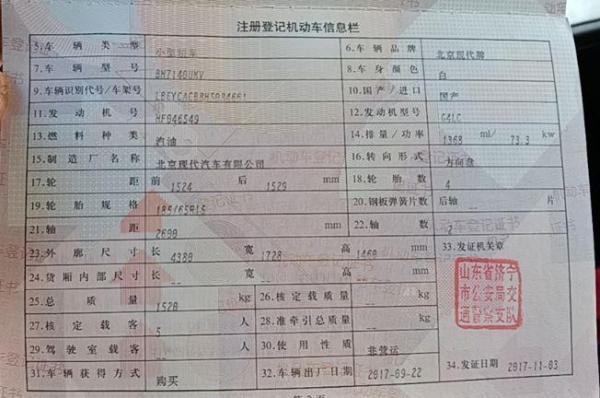 注册登记机动车信息栏
5.车辆类型 小型轿车 6.车辆品牌 北京现代牌
7.车辆型号 BH7140UMV 8.车身颜色 白
9.车辆识别代号/车架号 10.国产/进口 国产
11.发动机号 HF946549 12.发动机型号 G4LC
13.燃料种类 汽油 14.排量/功率 1368 ml/ 73.3 kw
15.制造厂名称 北京现代汽车有限公司 16.转向形式 方向盘
17.轮距 前 1524 后 1529 mm 18.轮胎数 4
19.轮胎规格 185/65R15 20.钢板弹簧片数 后轴 片
21.轴距 2600 mm 22.轴数 2
23.外廓尺寸 长 4380 宽 1728 高 1460 mm 33.发证机关章
24.货厢内部尺寸 长 -- 宽 -- 高 -- mm
山东省济宁
市公安局交
通警察支队
25.总质量 1520 kg 26.核定载质量 -- kg
27.核定载客 5 人 28.准牵引总质量 -- kg
29.驾驶室载客 -- 人 30.使用性质 非营运
31.车辆获得方式 购买 32.车辆出厂日期 2017-09-22 34.发证日期 2017-11-03